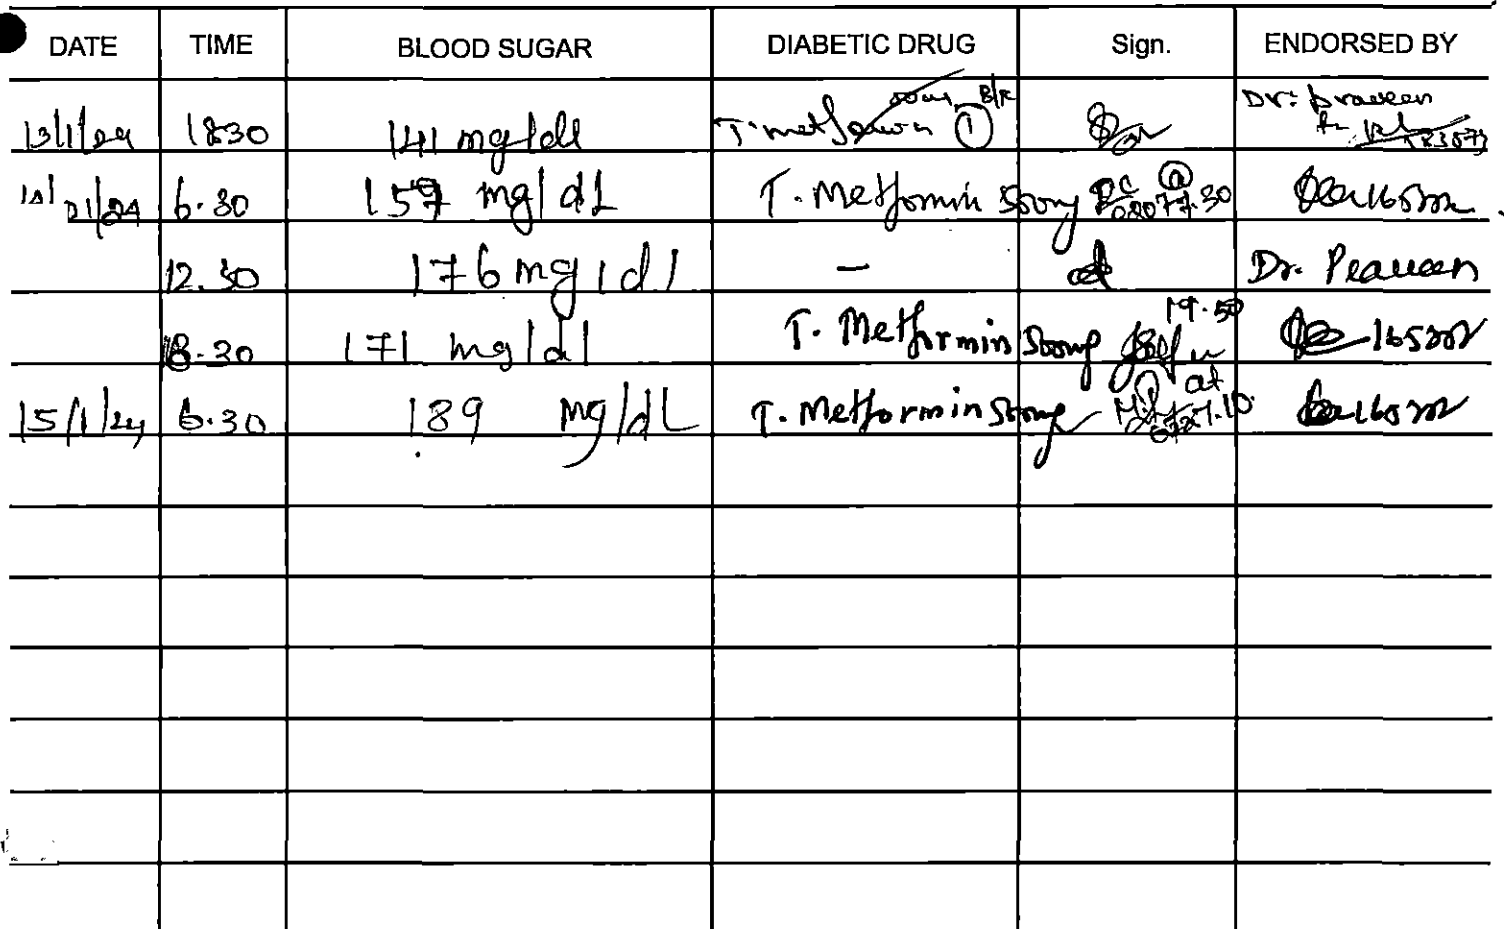 DATE TIME BLOOD SUGAR DIABETIC DRUG Sign. ENDORSED BY
13/1/24 1830 141 mg/dl T. metformin 500mg ① Dr. praveen
14/01/24 6.30 157 mg/dL T. Metformin 500mg @ 7.30
12.30 176 mg/dl - Dr. Praveen
18.30 171 mg/dl T. Metformin 500mg 19.50
15/1/24 6.30 189 mg/dL T. Metformin 500mg at 7.10